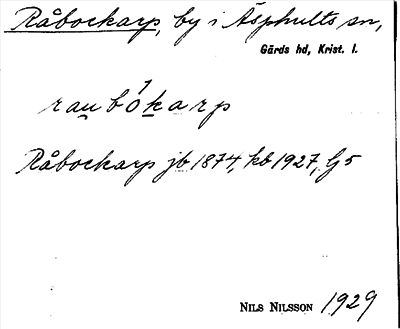 Råbockarp, by i Äsphults sn,
Gärds hd, Krist. l.
raubókarp
Råbockarp jb 1874, kb 1927, Gj 5
NILS NILSSON 1929